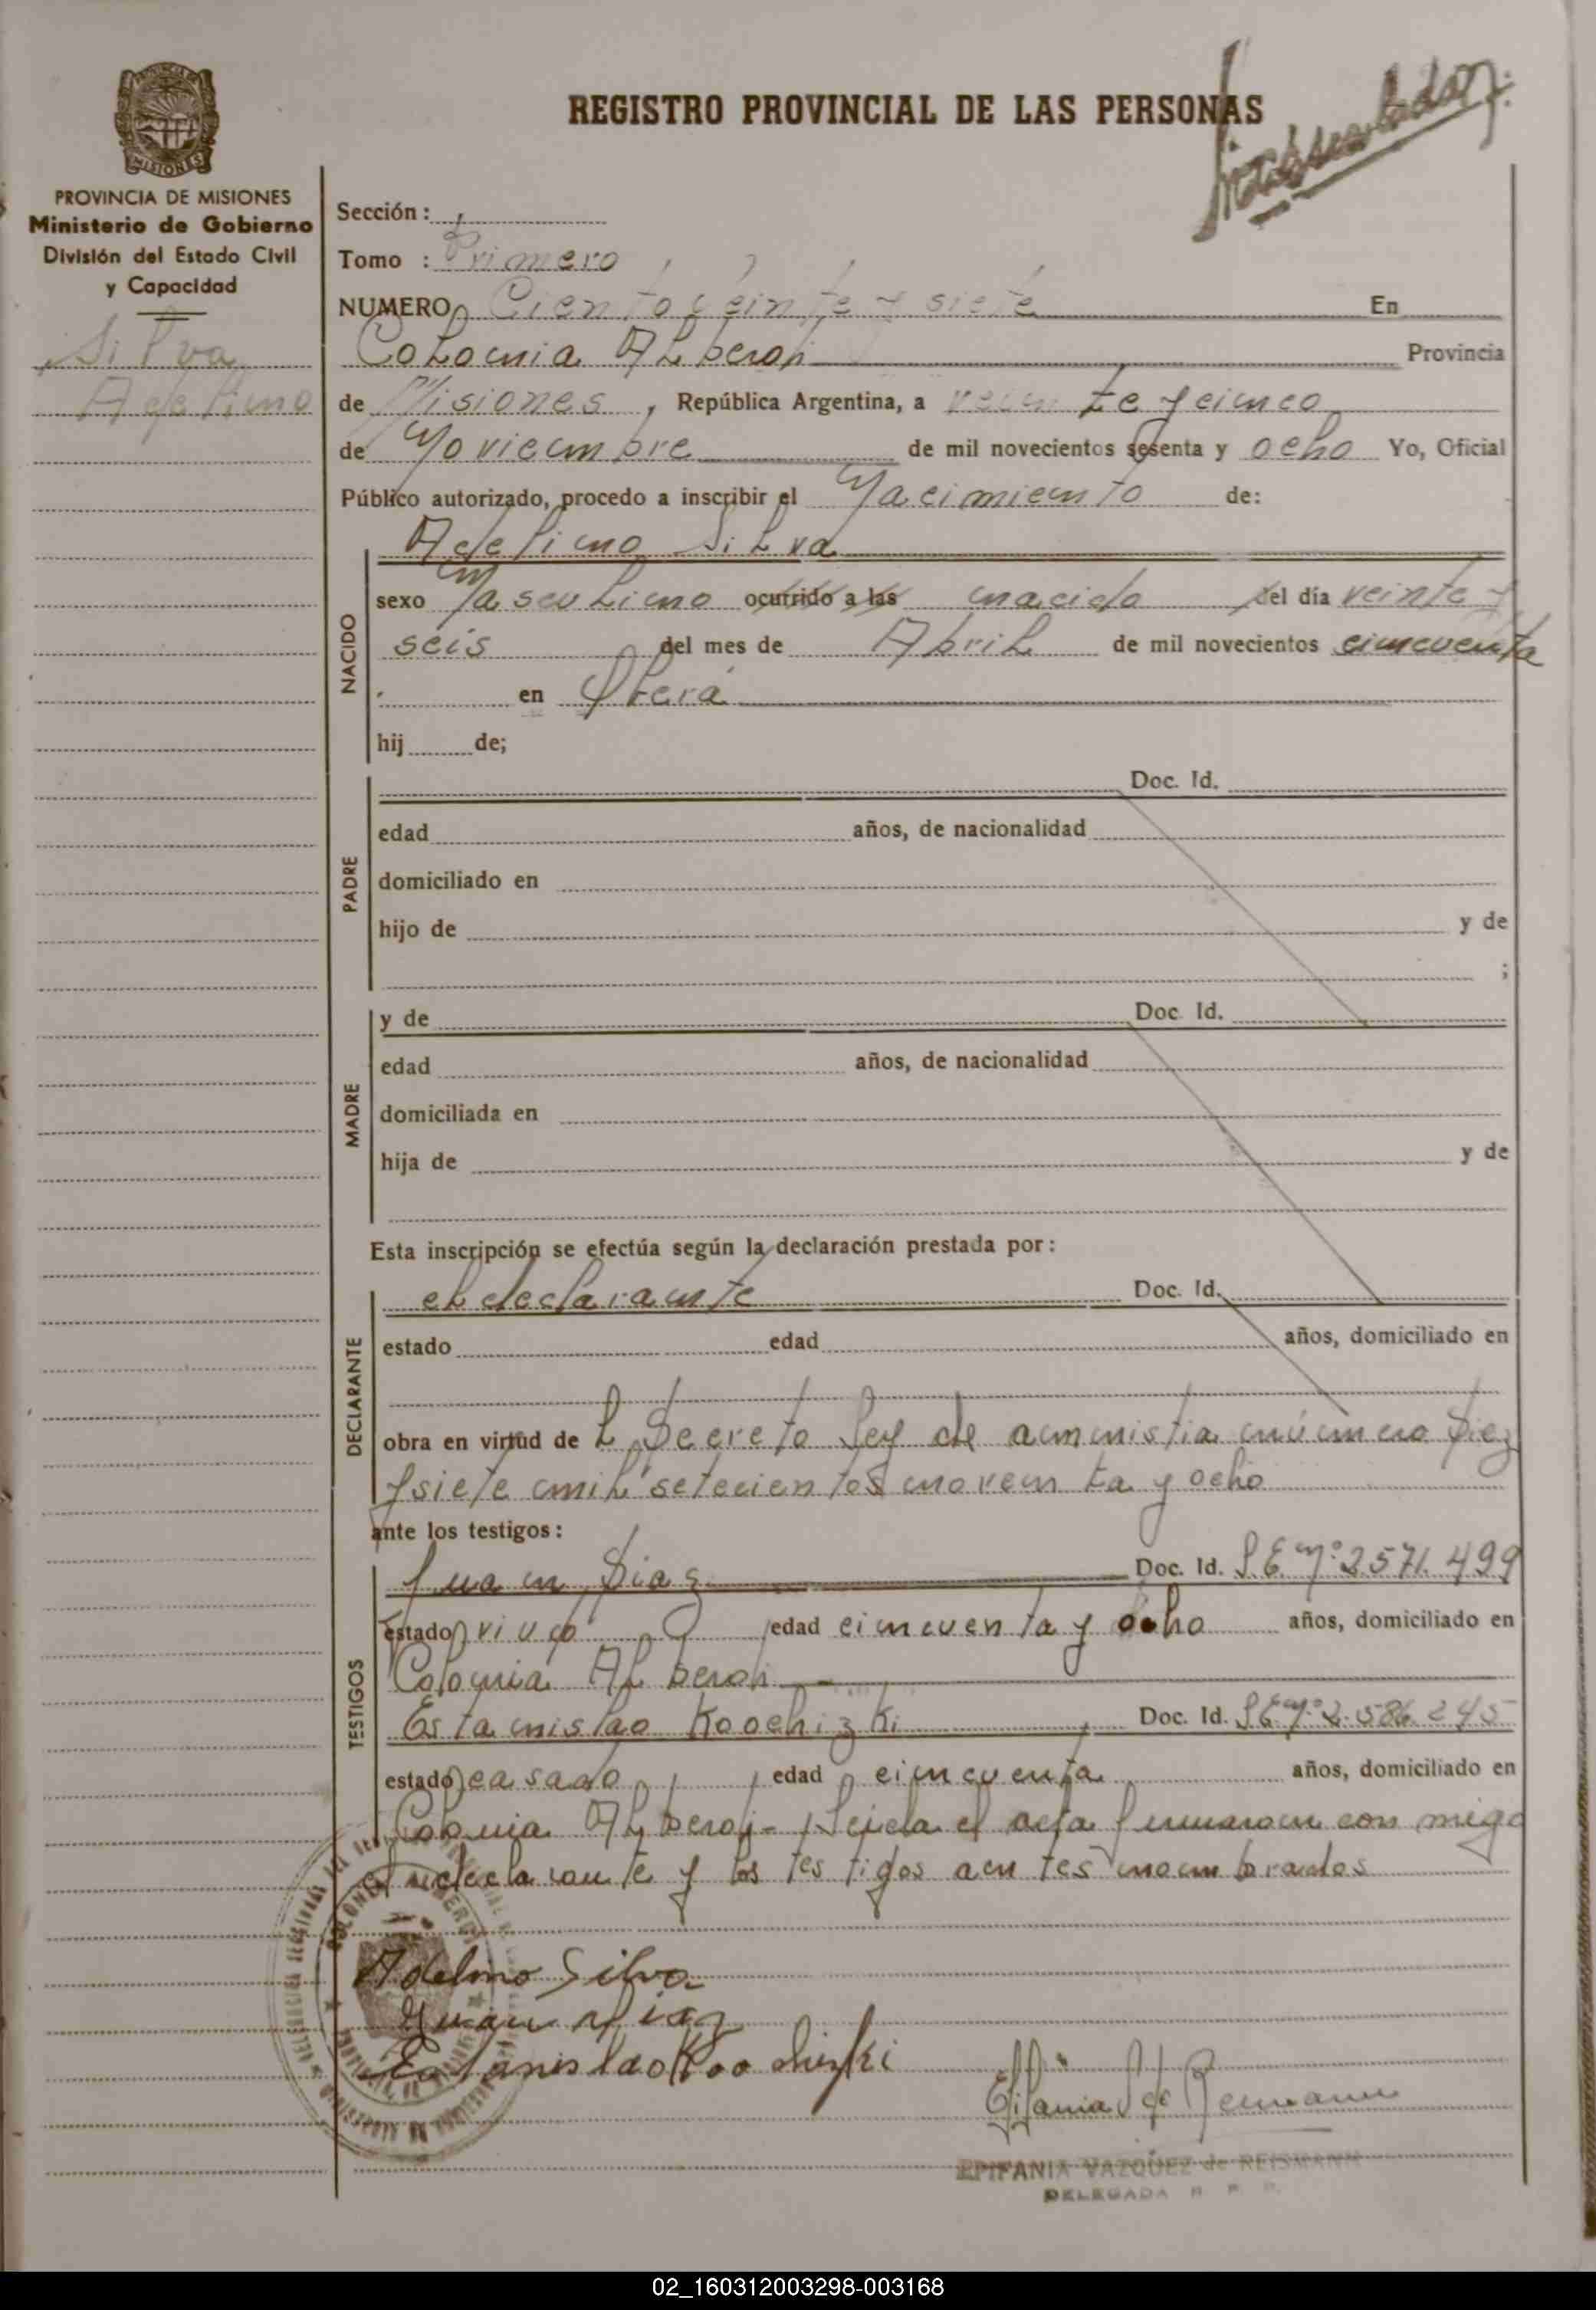 REGISTRO PROVINCIAL DE LAS PERSONAS
PROVINCIA DE MISIONES
Ministerio de Gobierno
División del Estado Civil
y Capacidad
Silva
Adelino
Sección:
Tomo : Primero
NUMERO Ciento veinte y siete En
Colonia Alberdi Provincia
de Misiones, República Argentina, a veinte y cinco
de Noviembre de mil novecientos sesenta y ocho Yo, Oficial
Público autorizado, procedo a inscribir el Nacimiento de:
Adelino Silva
NACIDO
sexo Masculino ocurrido a las nacido del día veinte y
seis del mes de Abril de mil novecientos cincuenta
en Oberá
hij de;
PADRE
Doc. Id.
edad años, de nacionalidad
domiciliado en
hijo de y de
;
MADRE
y de Doc. Id.
edad años, de nacionalidad
domiciliada en
hija de y de
Esta inscripción se efectúa según la declaración prestada por:
DECLARANTE
el declarante Doc. Id.
estado edad años, domiciliado en
obra en virtud de l Decreto Ley de amnistia número Diez
y siete mil setecientos noventa y ocho
ante los testigos:
TESTIGOS
Juan Diaz Doc. Id. L.E. Nº 2.571.499
estado viudo edad cincuenta y ocho años, domiciliado en
Colonia Alberdi
Estanislao Koochizki Doc. Id. L.E. Nº 2.586.245
estado casado edad cincuenta años, domiciliado en
Colonia Alberdi - Leida el acta firmaron con migo
el declarante y los testigos antes nombrados
Adelmo Silva
Juan Diaz
Estanislao Koochizki
Epifania V. de Reismann
EPIFANIA VAZQUEZ de REISMANN
DELEGADA R. P. P.
02_160312003298-003168